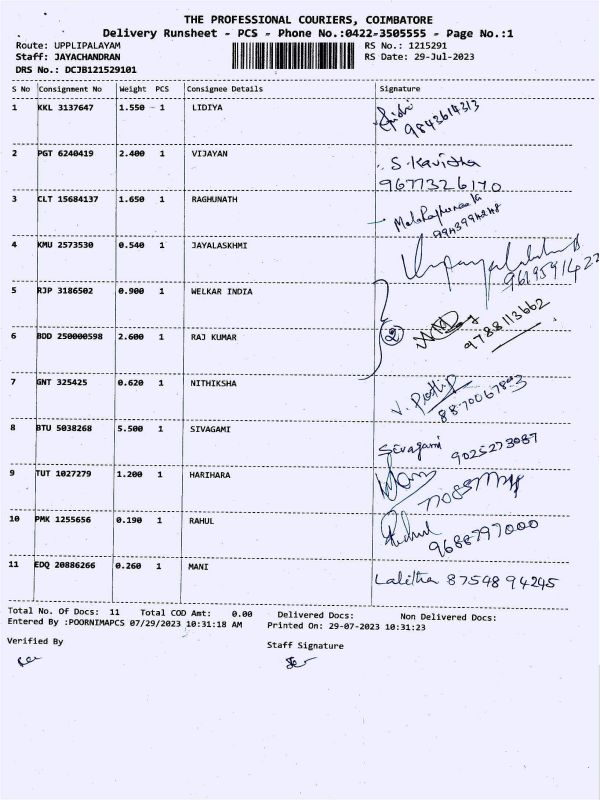 THE PROFESSIONAL COURIERS, COIMBATORE
Delivery Runsheet - PCS - Phone No.:0422-3505555 - Page No.:1
Route: UPPLIPALAYAM RS No.: 1215291
Staff: JAYACHANDRAN RS Date: 29-Jul-2023
DRS No.: DCJB121529101
S No Consignment No Weight PCS Consignee Details Signature
1 KKL 3137647 1.550 - 1 LIDIYA
9843614313
2 PGT 6240419 2.400 1 VIJAYAN S. Kavitha
9677326170
3 CLT 15684137 1.650 1 RAGHUNATH
4 KMU 2573530 0.540 1 JAYALASKHMI
9619591422
5 RJP 3186502 0.900 1 WELKAR INDIA
9788113662
6 BDD 250000598 2.600 1 RAJ KUMAR 2
7 GNT 325425 0.620 1 NITHIKSHA
8 BTU 5038268 5.500 1 SIVAGAMI Sivagami 9025273087
9 TUT 1027279 1.200 1 HARIHARA
10 PMK 1255656 0.190 1 RAHUL Rahul
9688797000
11 EDQ 20886266 0.260 1 MANI Lalitha 87548 94245
Total No. Of Docs: 11 Total COD Amt: 0.00 Delivered Docs: Non Delivered Docs:
Entered By :POORNIMAPCS 07/29/2023 10:31:18 AM Printed On: 29-07-2023 10:31:23
Verified By Staff Signature